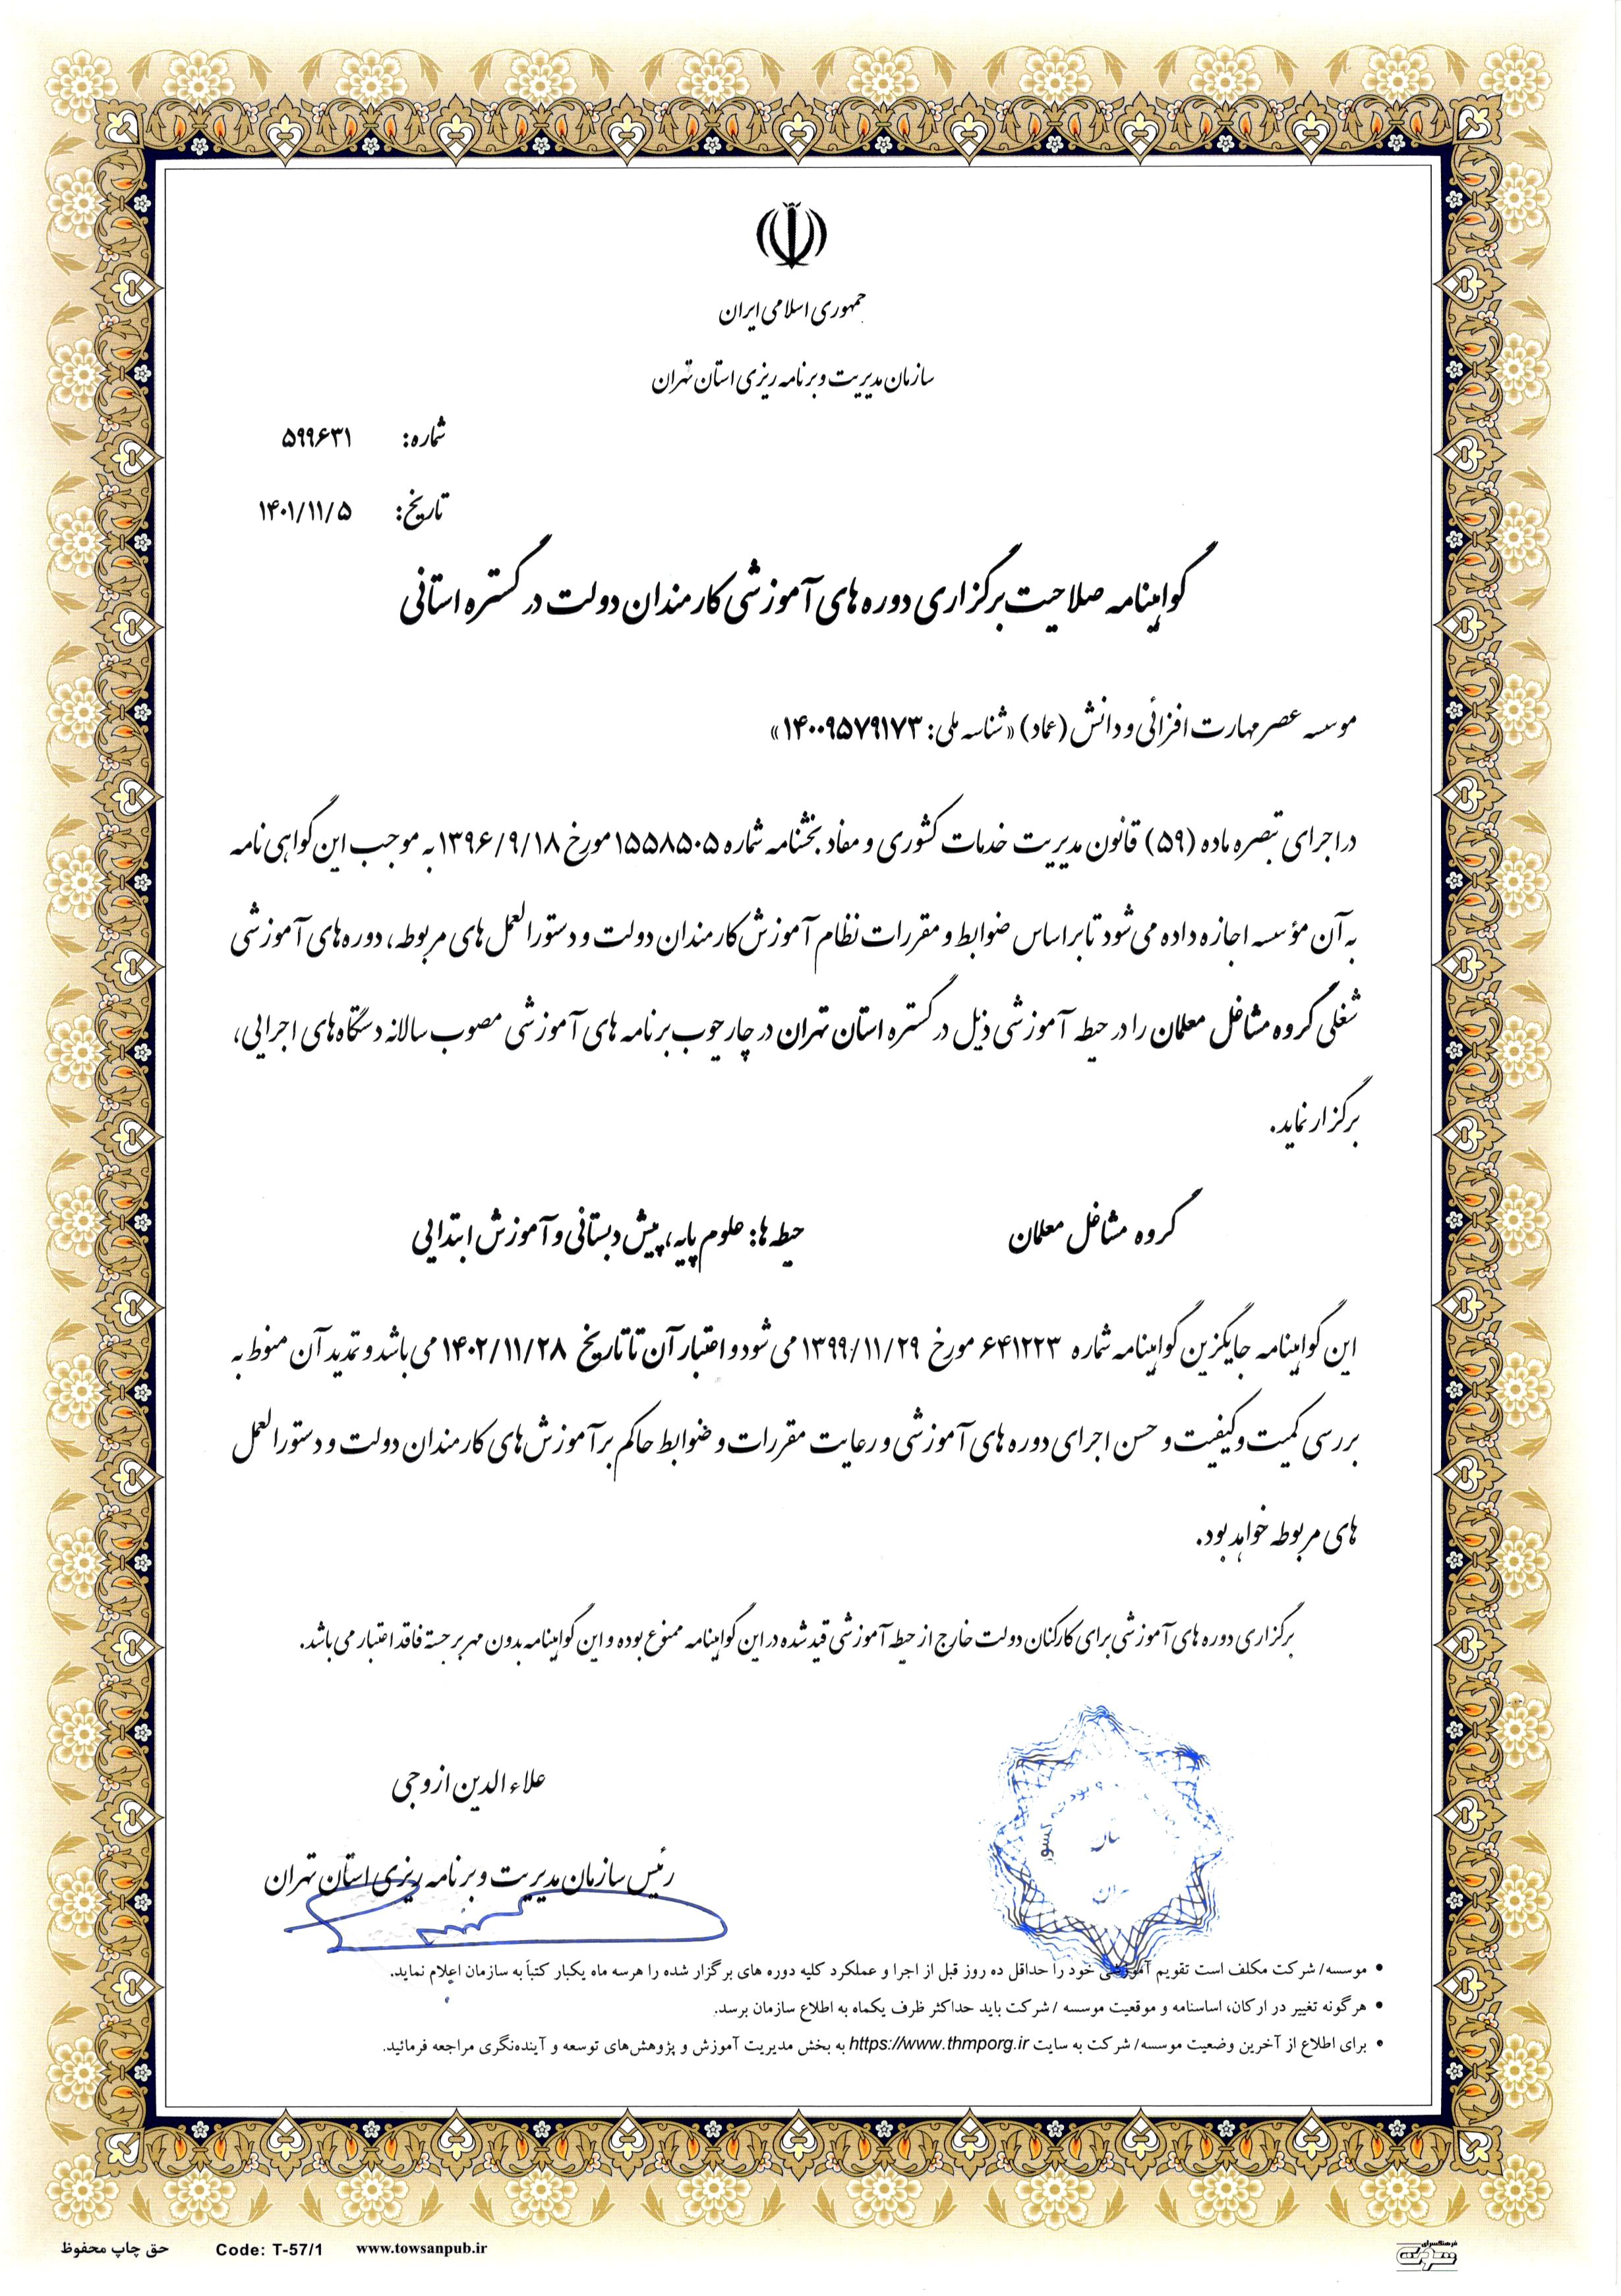 جمهوری اسلامی ایران
سازمان مدیریت و برنامه ریزی استان تهران
شماره: ۵۹۹۶۳۱
تاریخ: ۱۴۰۱/۱۱/۵
گواهینامه صلاحیت برگزاری دوره های آموزشی کارمندان دولت در گستره استانی
موسسه عصر مهارت افزائی و دانش (عماد) «شناسه ملی: ۱۴۰۰۹۵۷۹۱۷۳»
در اجرای تبصره ماده (۵۹) قانون مدیریت خدمات کشوری و مفاد بخشنامه شماره ۱۵۵۸۵۰۵ مورخ ۱۳۹۶/۹/۱۸ به موجب این گواهی نامه
به آن مؤسسه اجازه داده می‌شود تا براساس ضوابط و مقررات نظام آموزش کارمندان دولت و دستورالعمل‌های مربوطه، دوره‌های آموزشی
شغلی گروه مشاغل معلمان را در حیطه آموزشی ذیل در گستره استان تهران در چارچوب برنامه های آموزشی مصوب سالانه دستگاه‌های اجرایی،
برگزار نماید.
گروه مشاغل معلمان حیطه ها: علوم پایه، پیش دبستانی و آموزش ابتدایی
این گواهینامه جایگزین گواهینامه شماره ۶۴۱۲۲۳ مورخ ۱۳۹۹/۱۱/۲۹ می شود و اعتبار آن تا تاریخ ۱۴۰۲/۱۱/۲۸ می باشد و تمدید آن منوط به
بررسی کمیت و کیفیت و حسن اجرای دوره های آموزشی و رعایت مقررات و ضوابط حاکم بر آموزش‌های کارمندان دولت و دستورالعمل
های مربوطه خواهد بود.
برگزاری دوره های آموزشی برای کارکنان دولت خارج از حیطه آموزشی قید شده در این گواهینامه ممنوع بوده و این گواهینامه بدون مهر برجسته فاقد اعتبار می باشد.
علاء الدین ازوجی
رئیس سازمان مدیریت و برنامه ریزی استان تهران
• موسسه/ شرکت مکلف است تقویم آموزشی خود را حداقل ده روز قبل از اجرا و عملکرد کلیه دوره های برگزار شده را هرسه ماه یکبار کتباً به سازمان اعلام نماید.
• هرگونه تغییر در ارکان، اساسنامه و موقعیت موسسه /شرکت باید حداکثر ظرف یکماه به اطلاع سازمان برسد.
• برای اطلاع از آخرین وضعیت موسسه/ شرکت به سایت https://www.thmporg.ir به بخش مدیریت آموزش و پژوهش‌های توسعه و آینده‌نگری مراجعه فرمائید.
حق چاپ محفوظ Code: T-57/1 www.towsanpub.ir